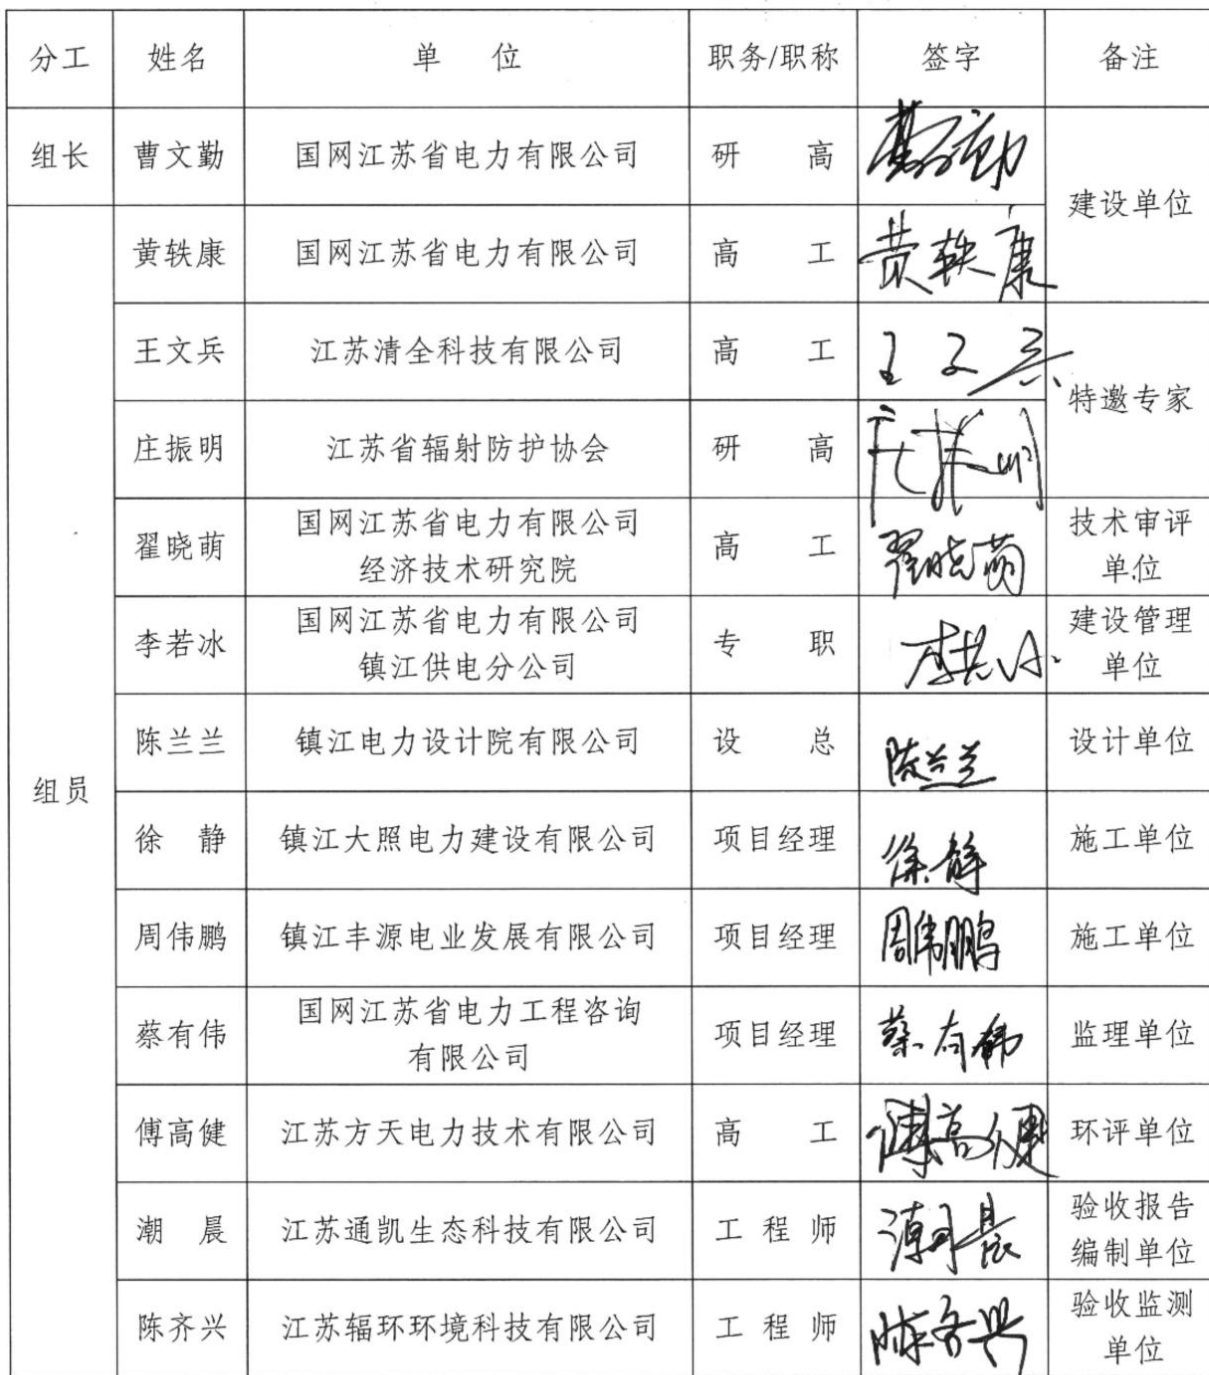 分工 姓名 单 位 职务/职称 签字 备注
组长 曹文勤 国网江苏省电力有限公司 研 高 曹文勤 建设单位
组员 黄轶康 国网江苏省电力有限公司 高 工 黄轶康
王文兵 江苏清全科技有限公司 高 工 王文兵 特邀专家
庄振明 江苏省辐射防护协会 研 高 庄振明
翟晓萌 国网江苏省电力有限公司 高 工 翟晓萌 技术审评
经济技术研究院 单位
李若冰 国网江苏省电力有限公司 专 职 李若冰 建设管理
镇江供电分公司 单位
陈兰兰 镇江电力设计院有限公司 设 总 陈兰兰 设计单位
徐 静 镇江大照电力建设有限公司 项目经理 徐静 施工单位
周伟鹏 镇江丰源电业发展有限公司 项目经理 周伟鹏 施工单位
蔡有伟 国网江苏省电力工程咨询 项目经理 蔡有伟 监理单位
有限公司
傅高健 江苏方天电力技术有限公司 高 工 傅高健 环评单位
潮 晨 江苏通凯生态科技有限公司 工 程 师 潮晨 验收报告
编制单位
陈齐兴 江苏辐环环境科技有限公司 工 程 师 陈齐兴 验收监测
单位